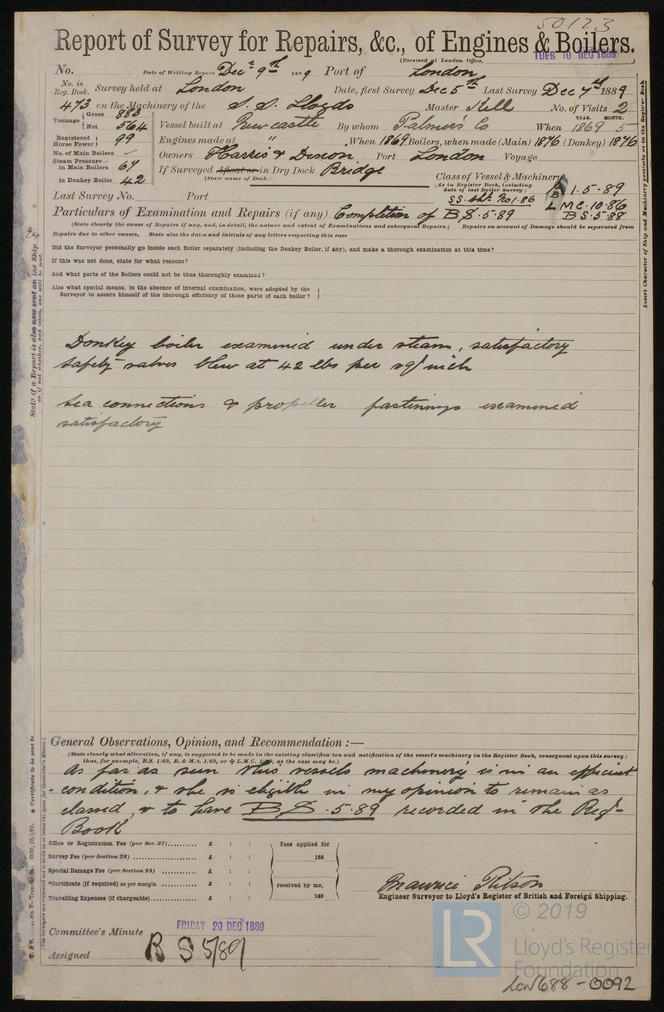 50123
Report of Survey for Repairs, &c., of Engines & Boilers.
(Received at London Office, TUES 10 DEC 1889
No. Date of Writing Report Dec 9th 1889 Port of London
No. in Reg. Book. Survey held at London Date, first Survey Dec 5th Last Survey Dec 7th 1889
473 on the Machinery of the S.S. Lloyds Master Kell No. of Visits 2
Tonnage Gross 883 Net 564
Vessel built at Newcastle By whom Palmers Co When 1869 5 YEAR. MONTH.
Registered Horse Power 99
Engines made at " When 1869 Boilers, when made (Main) 1876 (Donkey) 1876
No. of Main Boilers –
Owners Harris & Dixon Port London Voyage
Steam Pressure— in Main Boilers 64
in Donkey Boiler 42
If Surveyed Afloat or in Dry Dock Bridge
(State name of Dock.)
Class of Vessel & Machinery
(As in Register Book, including date of last Boiler Survey.)
A 1. 5-89
SS. No 1. 86
L M C. 10-86
B S. 5-88
Last Survey No. Port
Particulars of Examination and Repairs (if any) Completion of B S. 5-89
(State clearly the cause of Repairs if any, and, in detail, the nature and extent of Examinations and subsequent Repairs.) Repairs on account of Damage should be separated from
Repairs due to other causes. State also the dates and initials of any letters respecting this case
Did the Surveyor personally go inside each Boiler separately (including the Donkey Boiler, if any), and make a thorough examination at this time?
If this was not done, state for what reasons?
And what parts of the Boilers could not be thus thoroughly examined?
Also what special means, in the absence of internal examination, were adopted by the
Surveyor to assure himself of the thorough efficiency of those parts of each boiler?
Donkey boiler examined under steam, satisfactory
safety valves blew at 42 lbs per sq/ inch
Sea connections & propeller fastenings examined
satisfactory
General Observations, Opinion, and Recommendation :—
(State clearly what alteration, if any, is suggested to be made in the existing classification and notification of the vessel's machinery in the Register Book, consequent upon this survey;
thus, for example, B.S. 1/89, B. & M.S. 1/89, or L.M.C. 1/89, as the case may be.)
As far as seen this vessels machinery is in an efficient
condition, & she is eligible in my opinion to remain as
classed, & to have B S. 5-89 recorded in the Regr
Book
Office or Registration Fee (per Sec. 27) £ : :
Survey Fee (per Section 28) £ : :
Special Damage Fee (per Section 28) £ : :
*Certificate (if required) as per margin £ : :
Travelling Expenses (if chargeable) £ : :
Fees applied for
188
received by me,
188
Maurice Ritson
Engineer Surveyor to Lloyd's Register of British and Foreign Shipping.
Committee's Minute FRIDAY 20 DEC 1889
Assigned B S 5/89
LR
© 2019
Lloyd's Register
Foundation
Lon688-0092